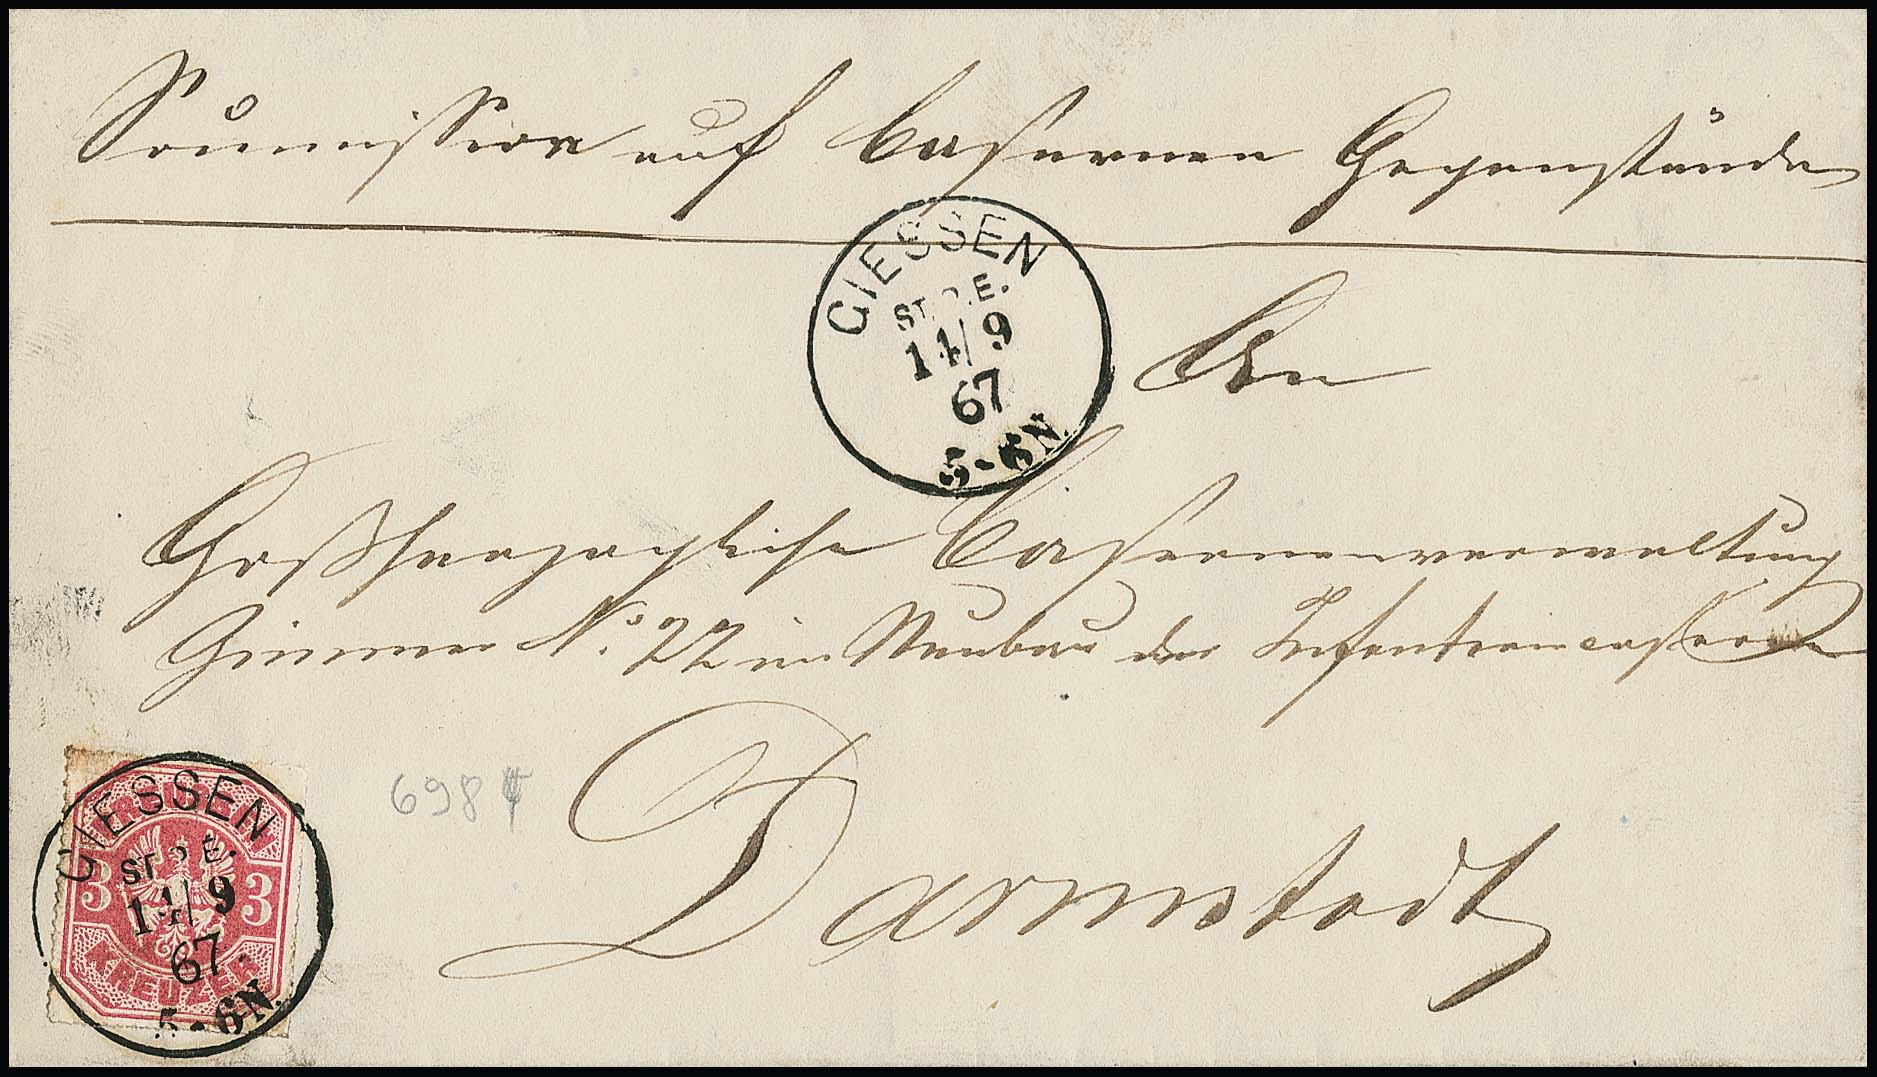 Soumission auf Casernen Gegenstände
GIESSEN
ST. P. E.
14/9
67
5-6N.
An
Großherzogliche Casernenverwaltung
Zimmer No. 22 im Neubau der Infanteriecaserne
6984
Darmstadt
GIESSEN
ST. P. E.
14/9
67.
5-6N.
3 3
KREUZER